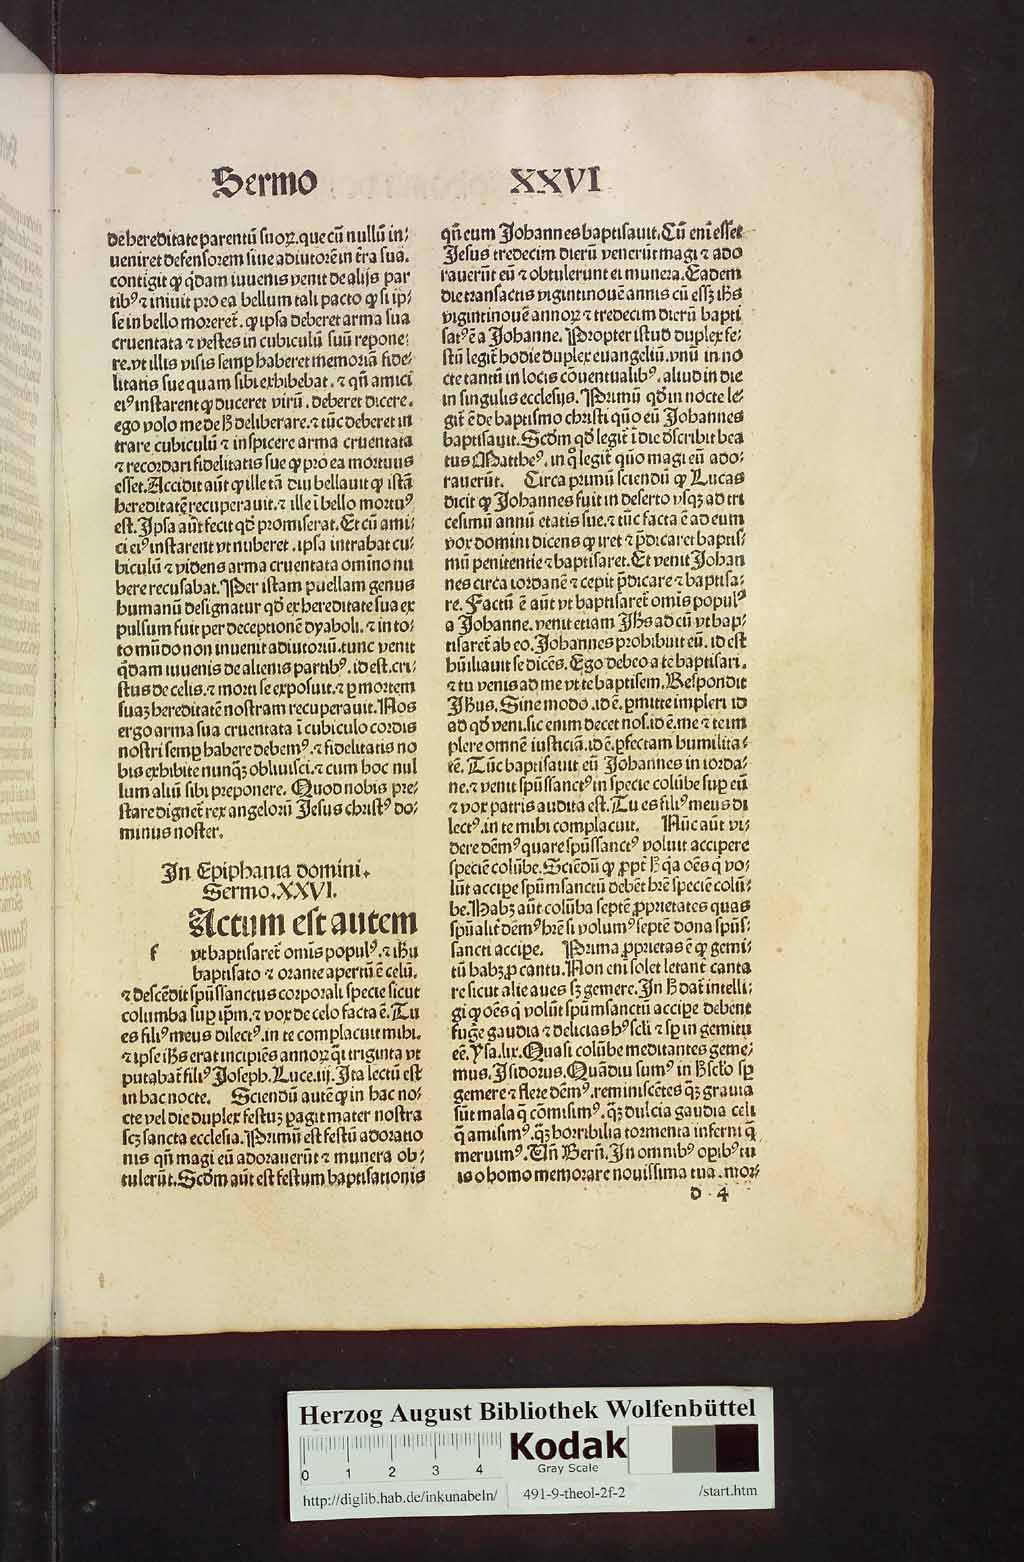 Sermo XXVI
de hereditate parentū suoꝝ. que cū nullū in⸗
ueniret defensorem siue adiutorē in t̄ra sua.
contigit ꝙ q̄dam iuuenis venit de alijs par
tibꝰ ⁊ iniuit pro ea bellum tali pacto ꝙ si ip⸗
se in bello moreret̄. ꝙ ipsa deberet arma sua
cruentata ⁊ vestes in cubiculū suū repone⸗
re. vt illis visis semꝑ haberet memoriā fide⸗
litatis sue quam sibi exhibebat. ⁊ qn̄ amici
eiꝰ instarent ꝙ duceret virū. deberet dicere.
ego volo me de h̄ deliberare. ⁊ tūc deberet in
trare cubiculū ⁊ inspicere arma cruentata
⁊ recordari fidelitatis sue ꝙ pro ea mortuus
esset. Accidit aūt ꝙ ille tā diu bellauit ꝙ istā
hereditatē recuperauit. ⁊ ille ī bello mortuꝰ
est. Ipsa aūt fecit qd̄ promiserat. Et cū ami⸗
ci eiꝰ instarent vt nuberet. ipsa intrabat cu⸗
biculū ⁊ videns arma cruentata omīno nu
bere recusabat. Per istam puellam genus
humanū designatur qd̄ ex hereditate sua ex
pulsum fuit per deceptionē dyaboli. ⁊ in to⸗
to mūdo non inuenit adiutoriū. tunc venit
q̄dam iuuenis de alienis partibꝰ. id est. cri⸗
stus de celis. ⁊ morti se exposuit. ⁊ ꝑ mortem
suaꝫ hereditatē nostram recuperauit. Nos
ergo arma sua cruentata ī cubiculo cordis
nostri semꝑ habere debemꝰ. ⁊ fidelitatis no
bis exhibite nunq̄ꝫ obliuisci. ⁊ cum hoc nul
lum aliū sibi preponere. Quod nobis pre⸗
stare dignet̄ rex angeloꝝ Jesus christꝰ do⸗
minus noster.
In Epiphania domini.
Sermo. XXVI.
Actum est autem
f vt baptisaret̄ omīs populꝰ. ⁊ ihū
baptisato ⁊ orante apertū ē celū.
⁊ descēdit spūssanctus corporali specie sicut
columba suꝑ ip̄m. ⁊ vox de celo facta ē. Tu
es filiꝰ meus dilectꝰ. in te complacuit mihi.
⁊ ipse ih̄s erat incipiēs annoꝝ q̄i triginta vt
putabat̄ filiꝰ Joseph. Luce. iij. Ita lectū est
in hac nocte. Sciendū autē ꝙ in hac no⸗
cte vel die duplex festuꝫ ꝑagit mater nostra
scꝫ sancta ecclesia. Primū est festū adoratio
nis qn̄ magi eū adorauerūt ⁊ munera ob⸗
tulerūt. Scd̄m aūt est festum baptisationis
qn̄ eum Johannes baptisauit. Cū eni esset
Jesus tredecim dierū venerūt magi ⁊ ado
rauerūt eū ⁊ obtulerunt ei munera. Eadem
die transactis vigintinouē annis cū essꝫ ih̄s
vigintinouē annoꝝ ⁊ tredecim dierū bapti
satꝰ ē a Johanne. Propter istud duplex fe⸗
stū legit̄ hodie duplex euangeliū. vnū in no
cte tantū in locis cōuentualibꝰ. aliud in die
in singulis ecclesijs. Primū qd̄ in nocte le⸗
git̄ ē de baptismo christi quō eū Johannes
baptisauit. Scd̄m qd̄ legit̄ ī die d̄scribit bea
tus Mattheꝰ. in q̊ legit̄ quō magi eū ado⸗
rauerūt. Circa primū sciendū ꝙ Lucas
dicit ꝙ Johannes fuit in deserto vsqꝫ ad tri
cesimū annū etatis sue. ⁊ tūc facta ē ad eum
vox domini dicens ꝙ iret ⁊ p̄dicaret baptis⸗
mū penitentie ⁊ baptisaret. Et venit Johan
nes circa iordanē ⁊ cepit p̄dicare ⁊ baptisa⸗
re. Factū ē aūt vt baptisaret̄ omīs populꝰ
a Johanne. venit etiam Jh̄s ad eū vt bap⸗
tisaret̄ ab eo. Johannes prohibuit eū. id est
hūiliauit se dicēs. Ego debeo a te baptisari.
⁊ tu venis ad me vt te baptisem. Respondit
Jhūs. Sine modo. id ē. ꝑmitte impleri id
ad qd̄ veni. sic enim decet nos. id ē. me ⁊ te im
plere omnē iusticiā. id ē. ꝑfectam humilita⸗
tē. Tūc baptisauit eū Johannes in iorda⸗
ne. ⁊ venit spūssanctꝰ in specie colūbe suꝑ eū
⁊ vox patris audita est. Tu es filiꝰ meus di
lectꝰ. in te mihi complacuit. Nūc aūt vi⸗
dere dēmꝰ quare spūssanctꝰ voluit accipere
speciē colūbe. Sciendū ꝙ ꝓpt̄ h̄ q̄a oēs q̄ vo⸗
lūt accipe spūmsanctū debēt hr̄e speciē colū⸗
be. Habꝫ aūt colūba septē ꝓprietates quas
spūalit̄ dēmꝰ hr̄e si volumꝰ septē dona spūs⸗
sancti accipe. Prima ꝓprietas ē ꝙ gemi⸗
tū habꝫ ꝓ cantu. Non eni solet letant̄ canta
re sicut alie aues sꝫ gemere. In h̄ dat̄ intelli⸗
gi ꝙ oēs q̄ volūt spūmsanctū accipe debent
fuḡe gaudia ⁊ delicias hꝰ scl̄i ⁊ sꝑ in gemitu
eē. Psa. lix. Quasi colūbe meditantes geme⸗
mus. Isidorus. Quādiu sumꝰ in h̄ sclo sꝑ
gemere ⁊ flere dēmꝰ. reminiscētes qꝫ grauia
sūt mala q̄ cōmisimꝰ. qꝫ dulcia gaudia celi
q̄ amisimꝰ. qꝫ horribilia tormenta inferni q̄
meruimꝰ. Vn̄ Bern̄. In omnibꝰ oꝑibꝰ tu
is o homo memorare nouissima tua. mor⸗
d 4
Herzog August Bibliothek Wolfenbüttel
0 1 2 3 4
Kodak
Gray Scale
http://diglib.hab.de/inkunabeln/ 491-9-theol-2f-2 /start.htm